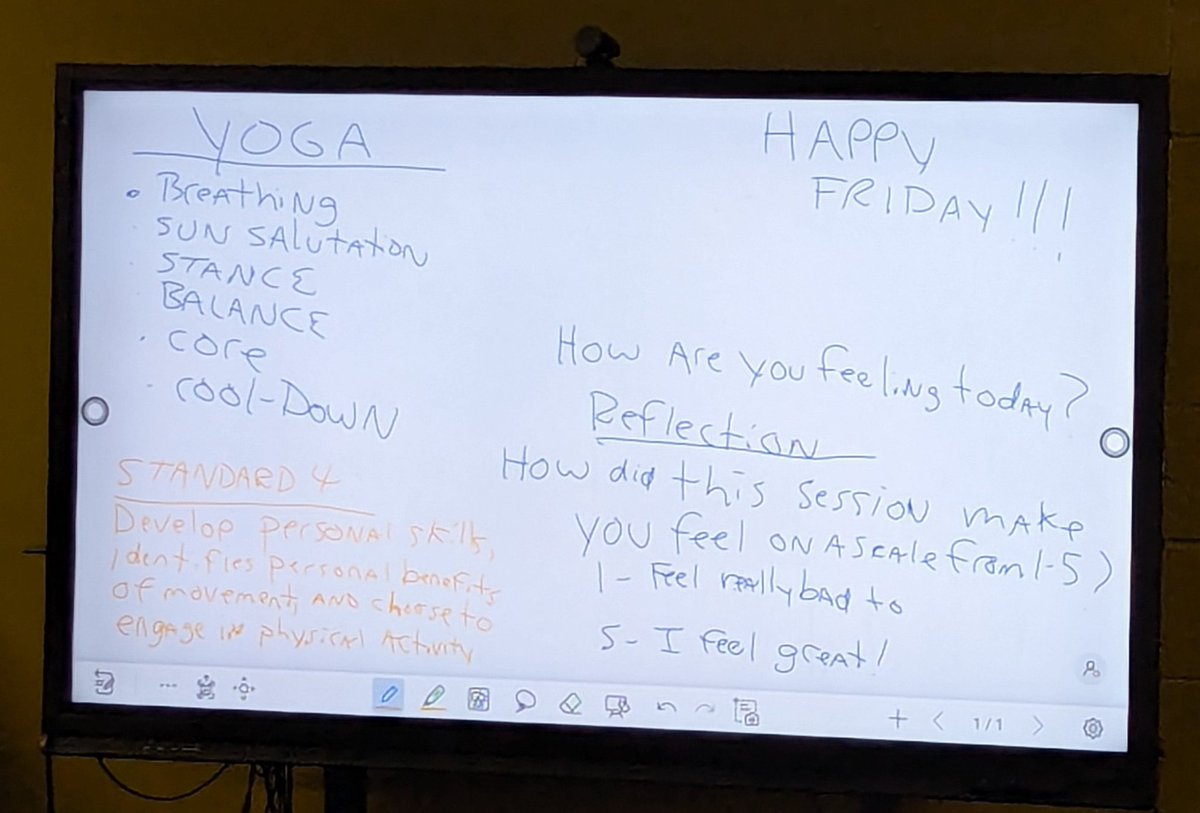 YOGA
• Breathing
SUN SALUTATION
STANCE
BALANCE
• Core
• Cool-Down
STANDARD 4
Develop personal skills,
identifies personal benefits
of movement, and choose to
engage in physical activity
HAPPY
FRIDAY!!!
How Are you feeling today?
Reflection
How did this session make
you feel on a scale from 1-5)
1 - Feel really bad to
5 - I feel great!
1/1